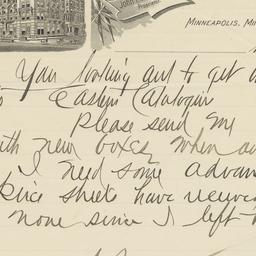 John
Proprietor.
MINNEAPOLIS, MI
You looking out to get
Eastern Catalogue
Please send my
with new boxes when
I need some advan
price sheets have received
none since I left